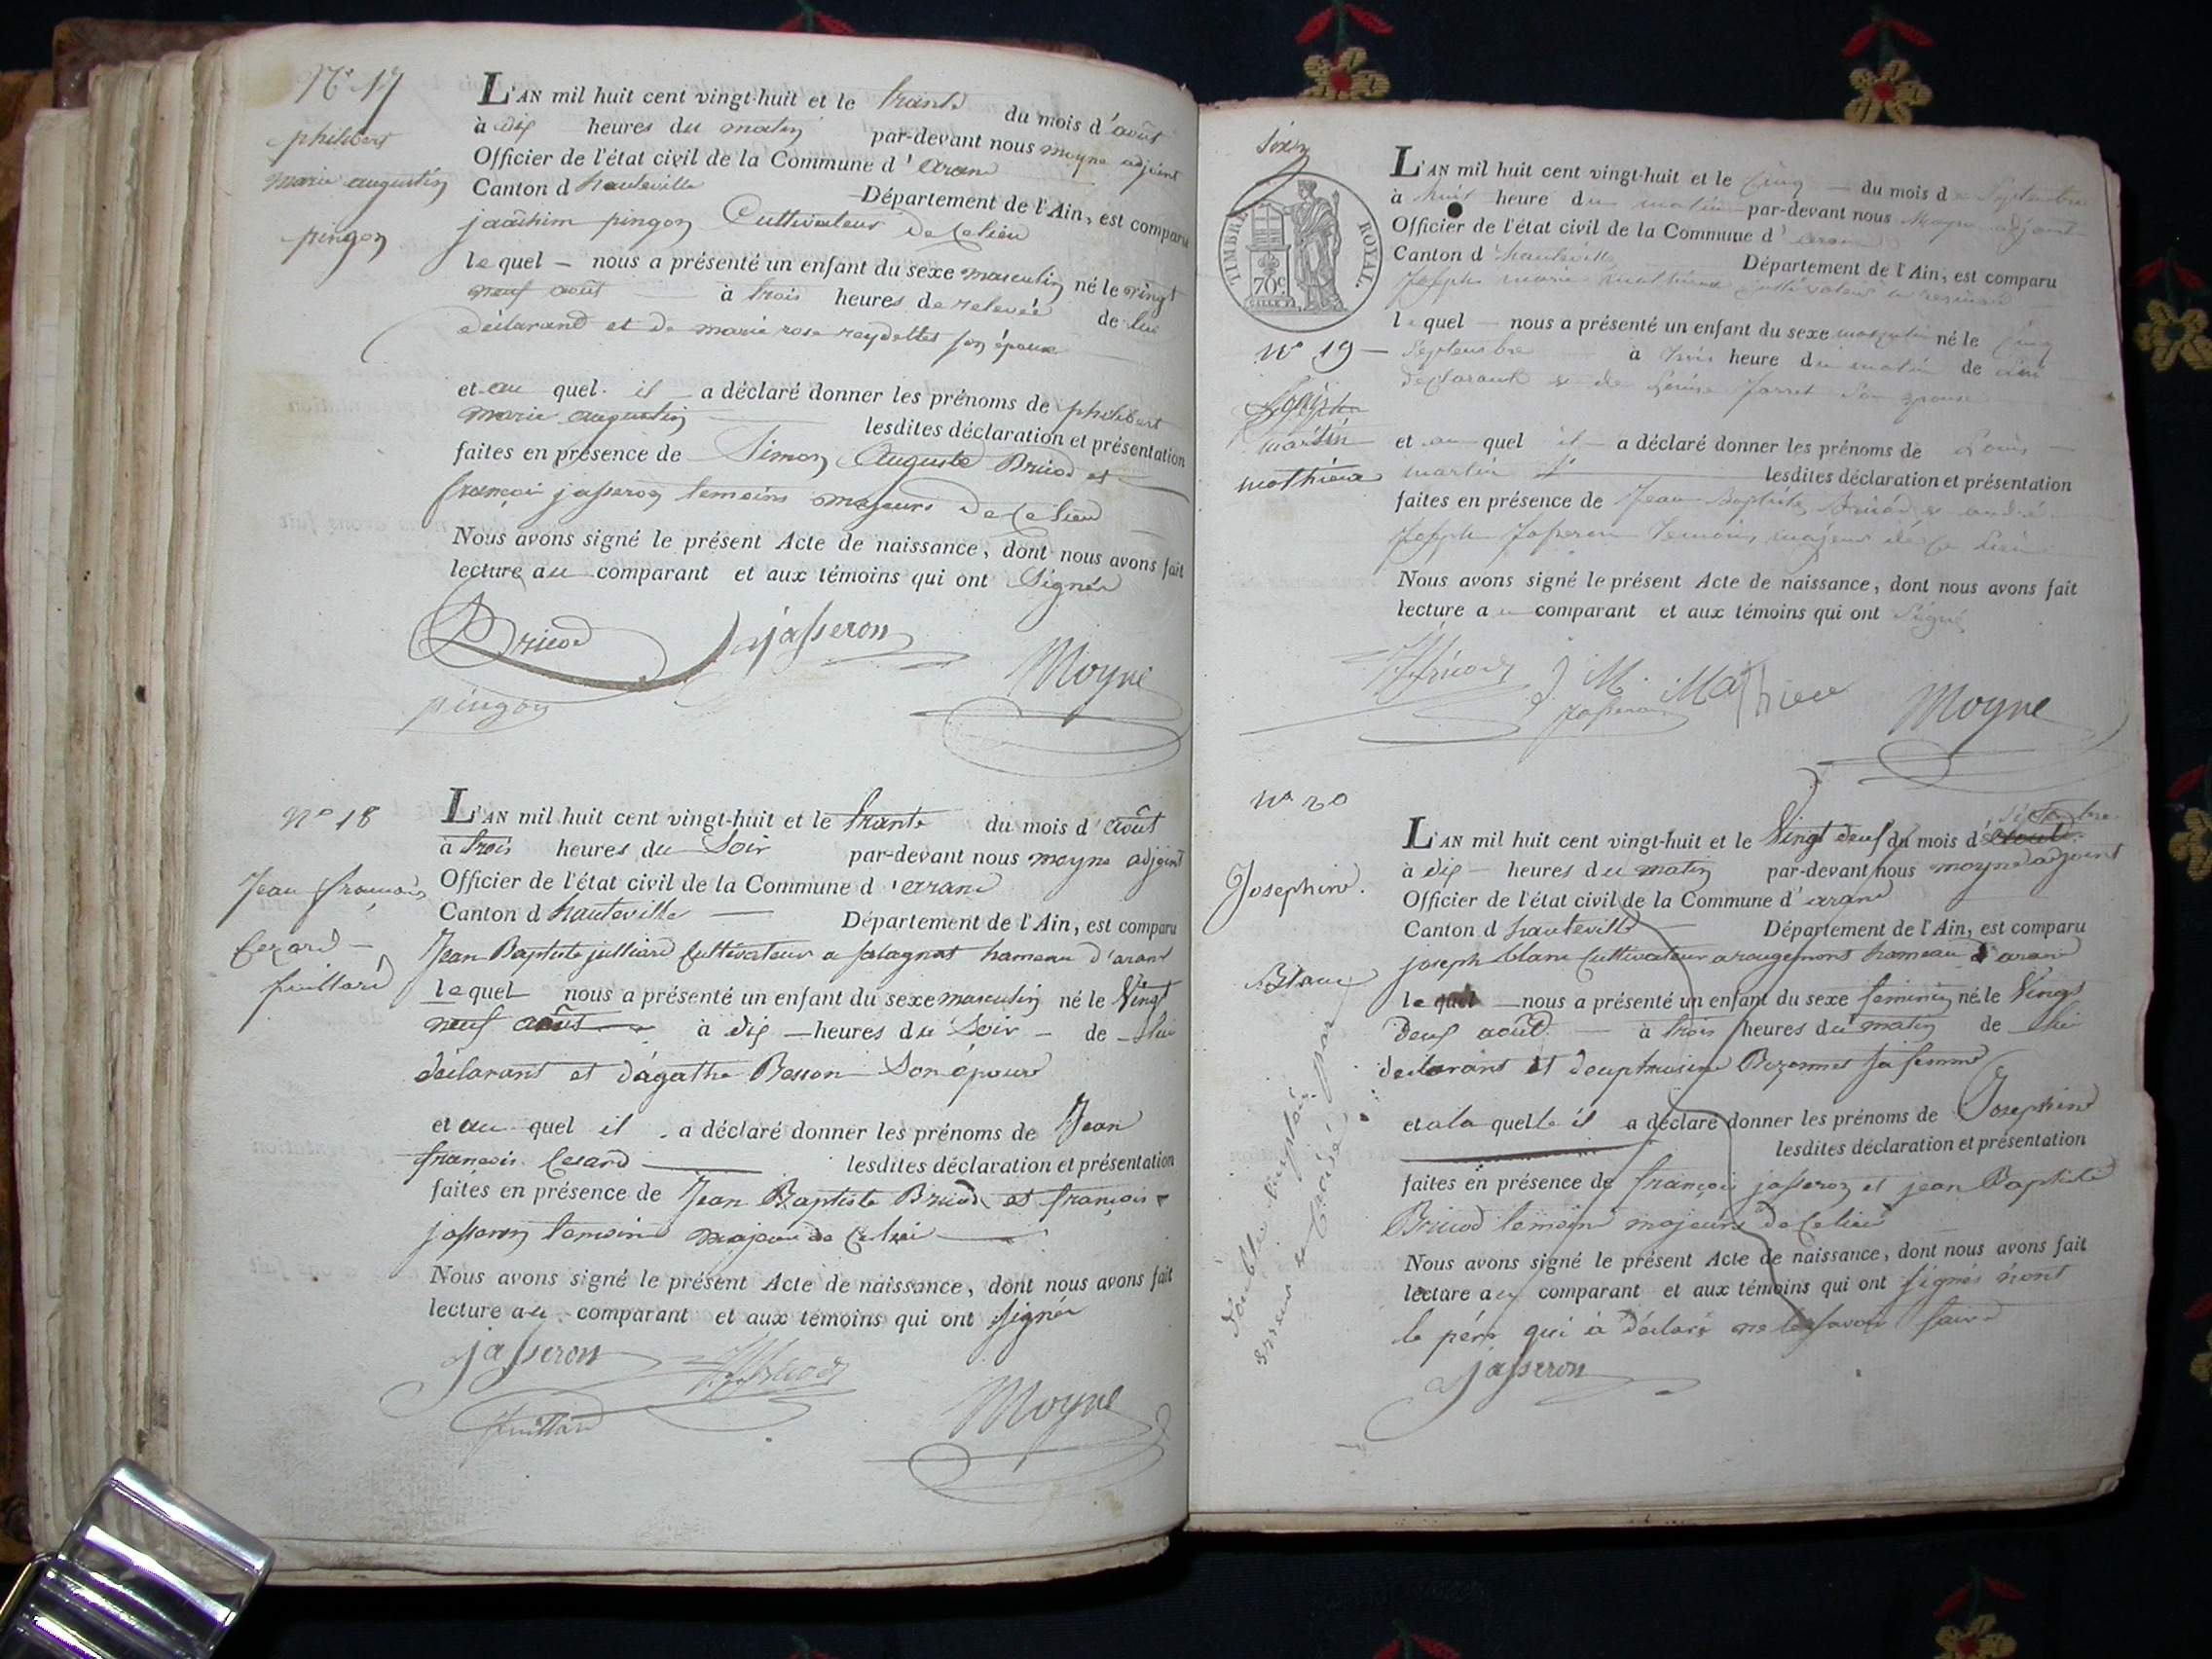 N° 17
philibert
marie augustin
pingon
L'AN mil huit cent vingt-huit et le trante du mois d'août
à dix heures du matin par-devant nous moyne adjoint
Officier de l'état civil de la Commune d'arane
Canton d hauteville Département de l'Ain, est comparu
joachim pingon Cultivateur De Celieu
le quel nous a présenté un enfant du sexe masculin né le vingt
neuf août à trois heures de relevée de lui
déclarand et de marie rose reydellet son épouse
et au quel il a déclaré donner les prénoms de philibert
marie augustin lesdites déclaration et présentation
faites en présence de Simon Auguste Bricod et
françoi jasseron temoins majeurs De Ce lieu
Nous avons signé le présent Acte de naissance, dont nous avons fait
lecture au comparant et aux témoins qui ont Signés
Bricod jasseron
pingon Moyne
N° 18
Jean françois
Cezard
juillard
L'AN mil huit cent vingt-huit et le trante du mois d'août
à trois heures du Soir par-devant nous moyne adjoint
Officier de l'état civil de la Commune d'arane
Canton d hauteville Département de l'Ain, est comparu
Jean Baptiste juillard Cultivateur a hameau d'aranc
le quel nous a présenté un enfant du sexe masculin né le Vingt
neuf août à dix heures du Soir de lui
déclarant et d'agathe Besson Son épouse
et au quel il a déclaré donner les prénoms de Jean
françois Cesard lesdites déclaration et présentation
faites en présence de Jean Baptiste Bricod et françois
jasseron temoins majeur de Celieu
Nous avons signé le présent Acte de naissance, dont nous avons fait
lecture au comparant et aux témoins qui ont signés
jasseron Bricod
juillard Moyne
TIMBRE ROYAL.
70c
N° 19
martin
mathieu
L'AN mil huit cent vingt-huit et le cinq du mois de Septembre
à huit heure du matin par-devant nous Moyne adjoint
Officier de l'état civil de la Commune d'arane
Canton d'hauteville Département de l'Ain, est comparu
Joseph marie mathieu cultivateur a
le quel nous a présenté un enfant du sexe masculin né le cinq
Septembre à trois heure du matin de lui
déclarant et de Louise Jarret Son epouse
et au quel il a déclaré donner les prénoms de Louis
martin lesdites déclaration et présentation
faites en présence de Jean Baptiste Bricod et andré
Joseph Jasseron temoins majeur de ce lieu
Nous avons signé le présent Acte de naissance, dont nous avons fait
lecture au comparant et aux témoins qui ont Signé
Bricod J. M. Mathieu
Jasseron Moyne
N° 20
Josephine.
Blanc
double emploi par
erreur
L'AN mil huit cent vingt-huit et le Vingt deuf du mois d'août septembre
à dix heures du matin par-devant nous moyne adjoint
Officier de l'état civil de la Commune d'arane
Canton d hauteville Département de l'Ain, est comparu
joseph blanc Cultivateur a rougemont hameau d'arane
le quel nous a présenté un enfant du sexe feminin né le Vingt
deuf août à trois heures du matin de lui
declarant et deuphrosine Bizonnet sa femme
et a la quelle il a déclaré donner les prénoms de Josephine
lesdites déclaration et présentation
faites en présence de françoi jasseron et jean Baptiste
Bricod temoins majeurs de Celieu
Nous avons signé le présent Acte de naissance, dont nous avons fait
lecture au comparant et aux témoins qui ont signés nont
le père qui à déclaré ne le savoir faire
jasseron